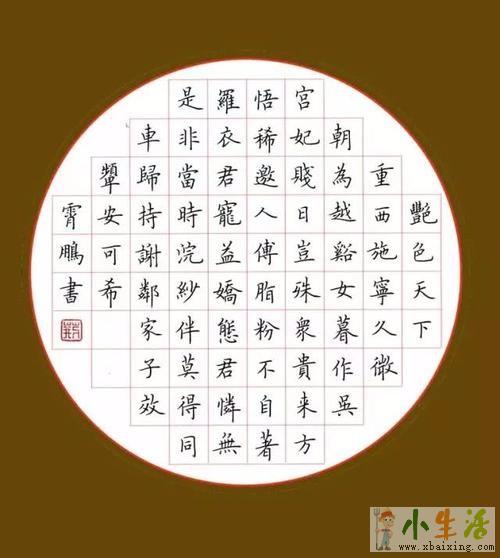 豔色天下
重西施寧久微
朝為越谿女暮作吳
宮妃賤日豈殊衆貴來方
悟稀邀人傅脂粉不自著
羅衣君寵益嬌態君憐無
是非當時浣紗伴莫得同
車歸持謝鄰家子效
顰安可希
霄鵬書
小生活
www.xbaixing.com